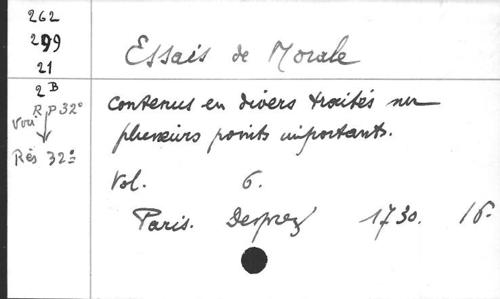 262
299
21
2B
Voir R P 32°
Rès 32°
Essais de Morale
contenus en divers traités sur
plusieurs points importants.
Vol. 6.
Paris. Desprez 1730. 16.